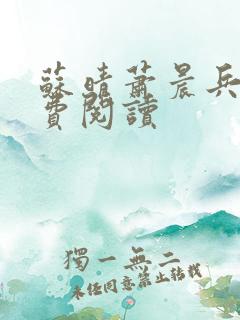 蘇晴蕭晨兵
費閱讀
獨一無二
未經同意禁止轉載